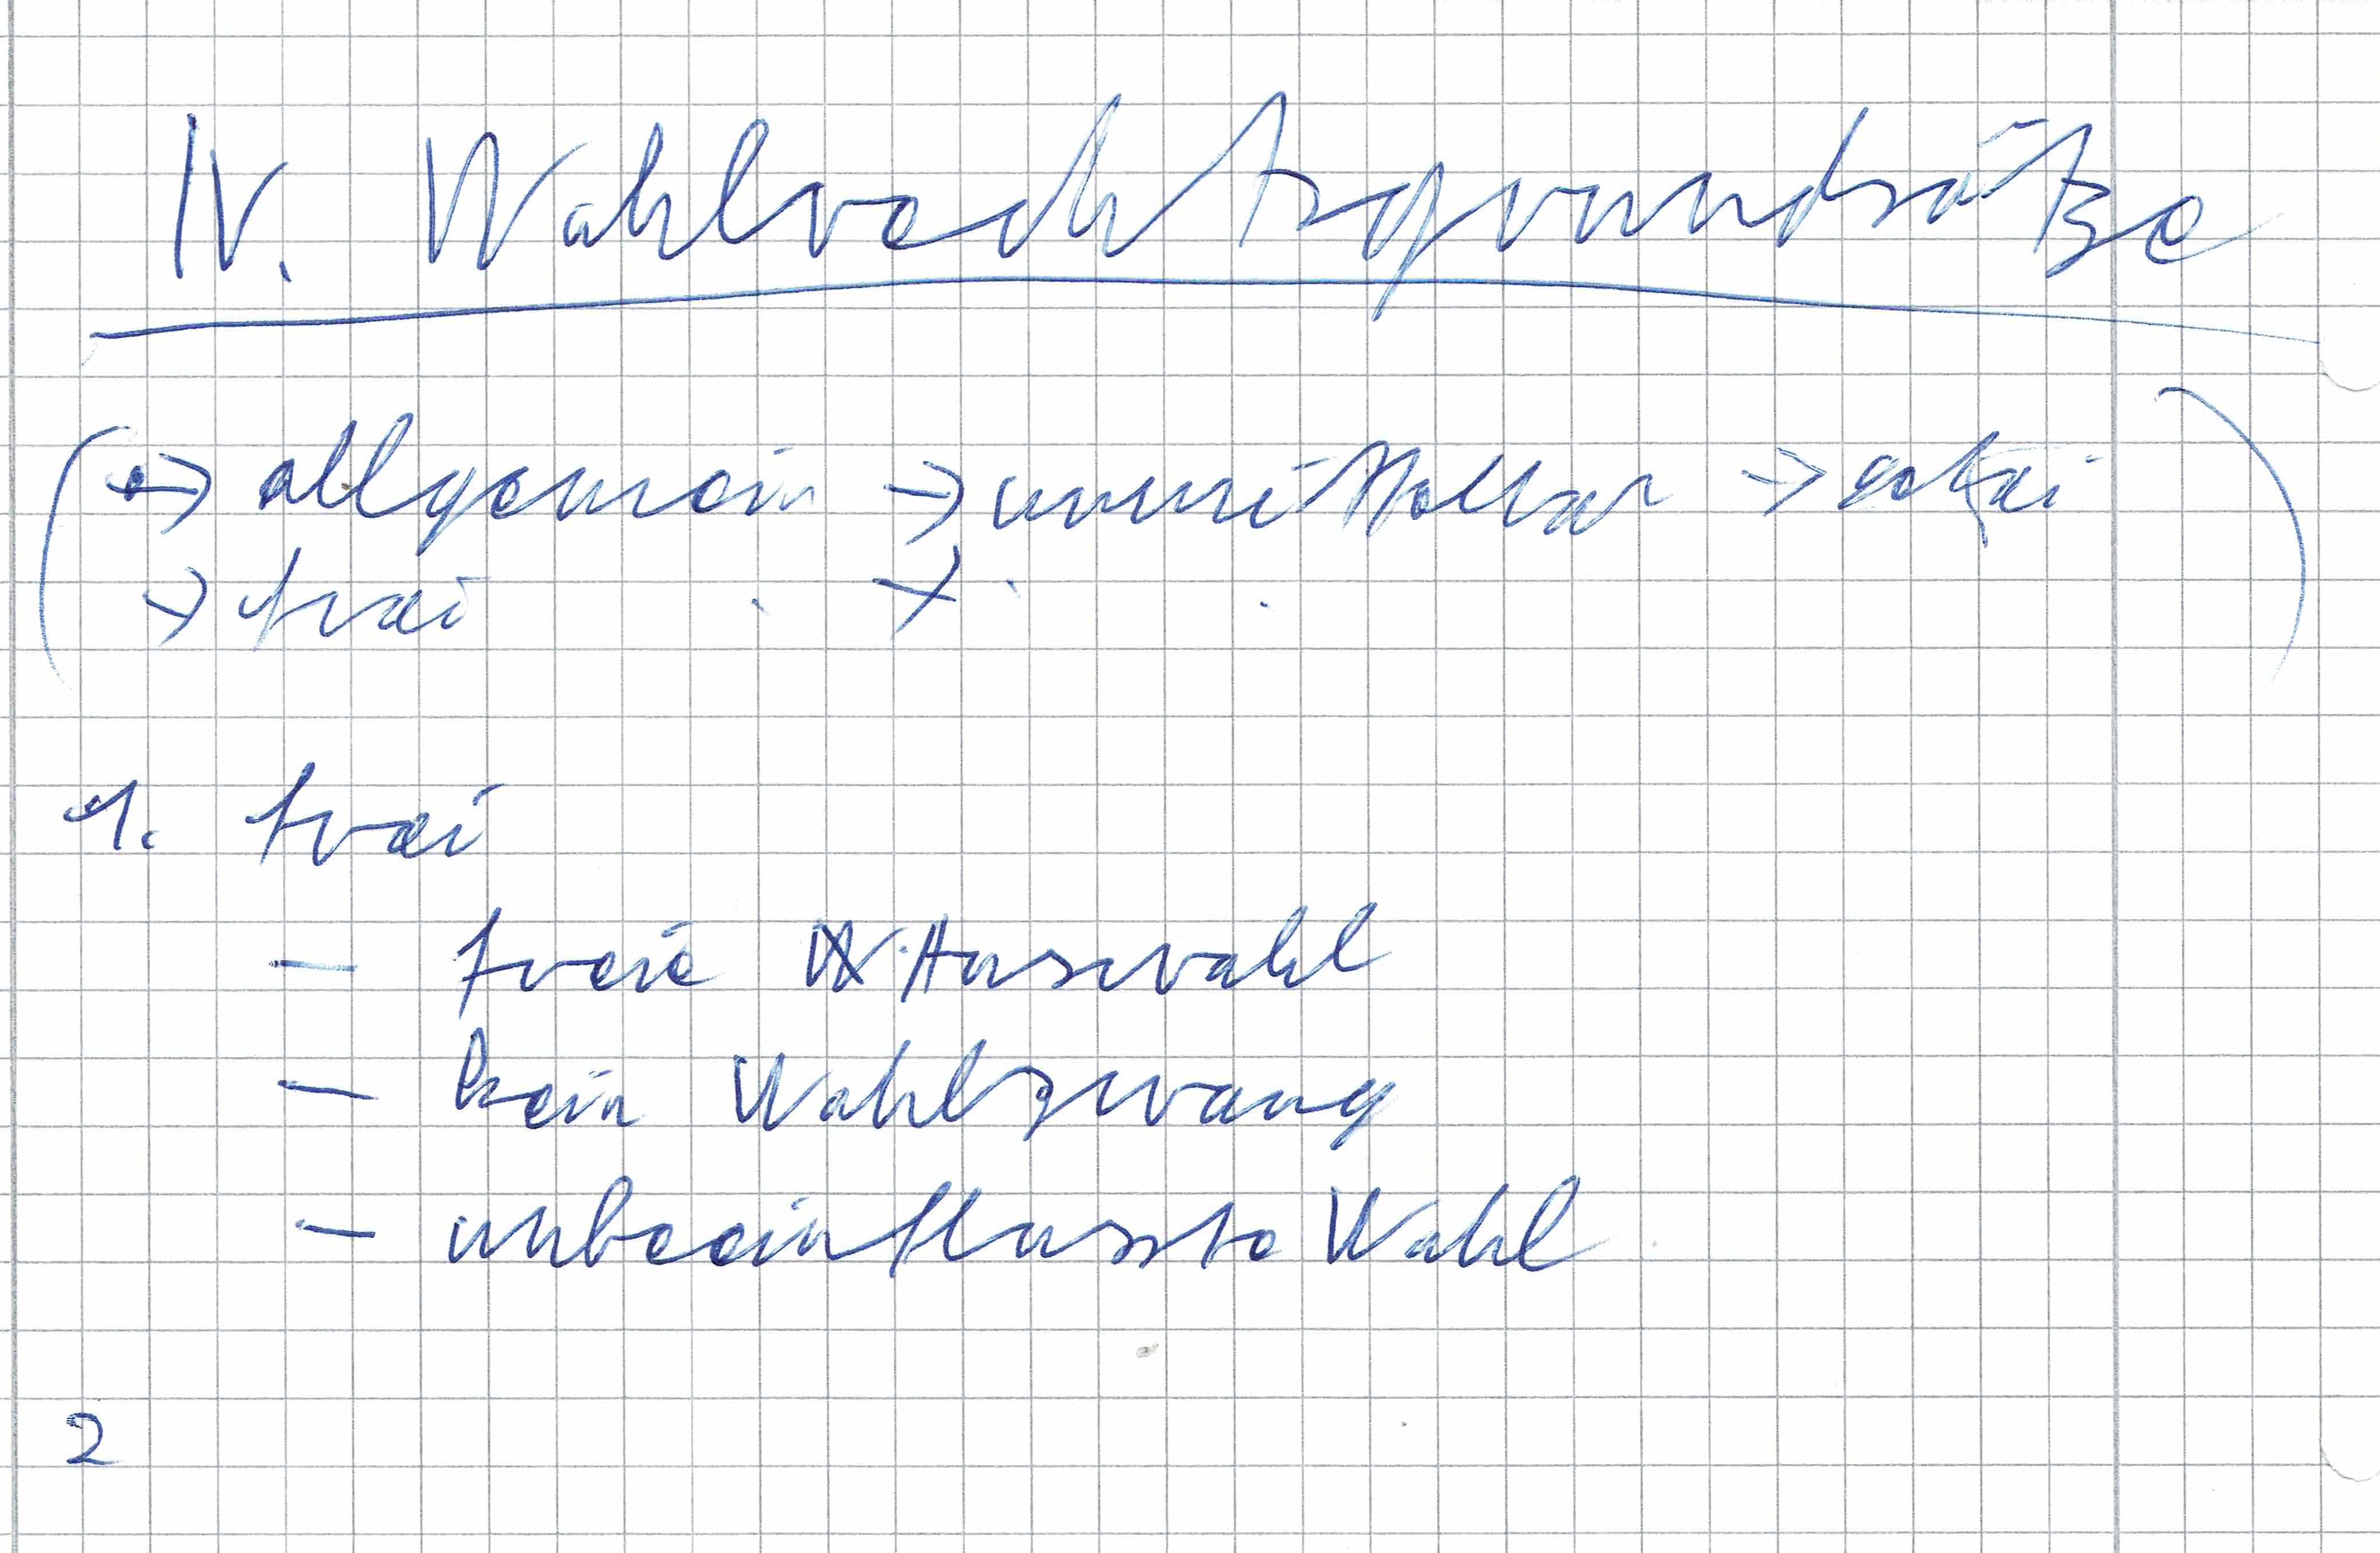 IV. Wahlrechtsgrundsätze
(→ allgemein → unmittelbar →
→ frei
1. frei
– freie Auswahl
– kein Wahlzwang
– unbeeinflusste Wahl
2